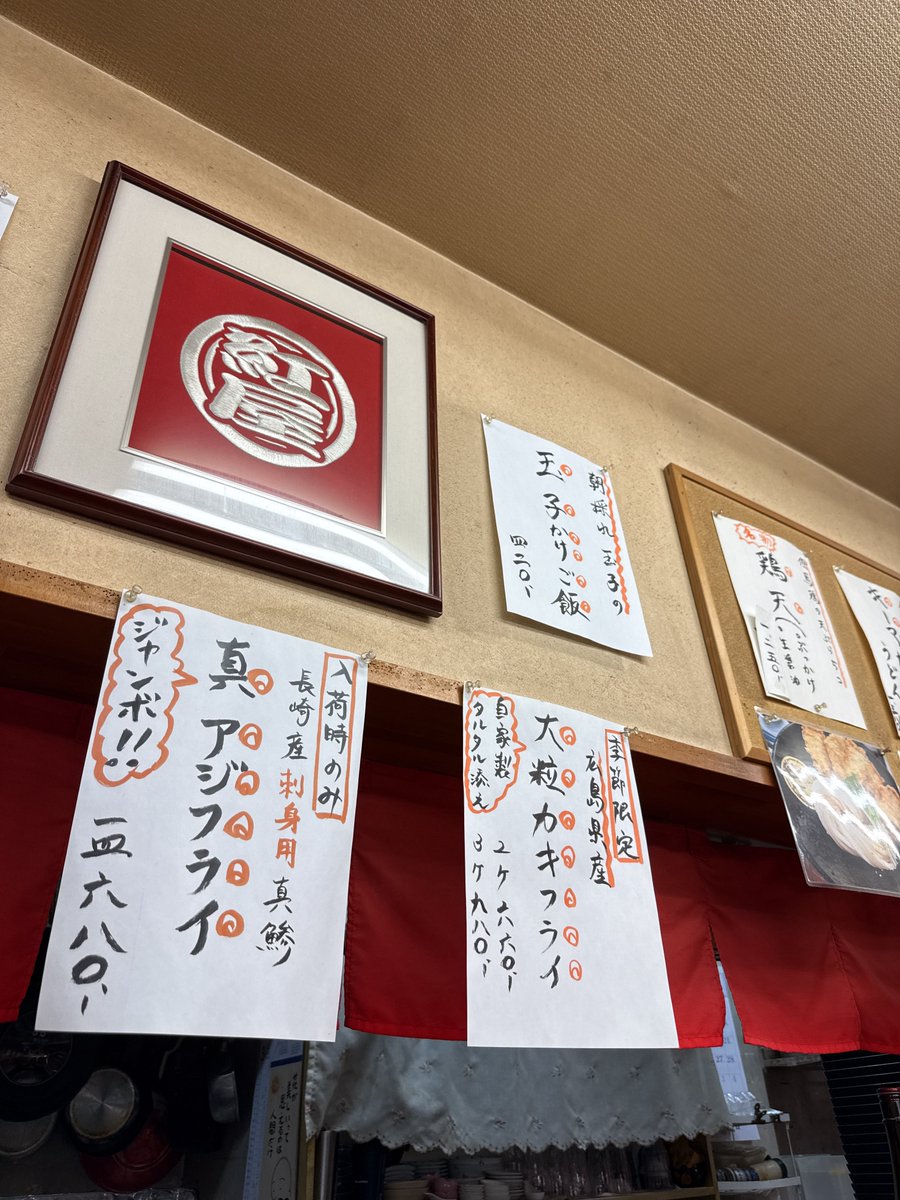 紅屋
朝採れ玉子の
玉子かけご飯
四二〇、
名物
鶏天
ぶっかけ
生醤油
一三五〇、
入荷時のみ
長崎産刺身用真鯵
真アジフライ
ジャンボ!!
一匹六八〇、
季節限定
広島県産
大粒カキフライ
自家製
タルタル添え
2ケ六六〇、
3ケ九八〇、